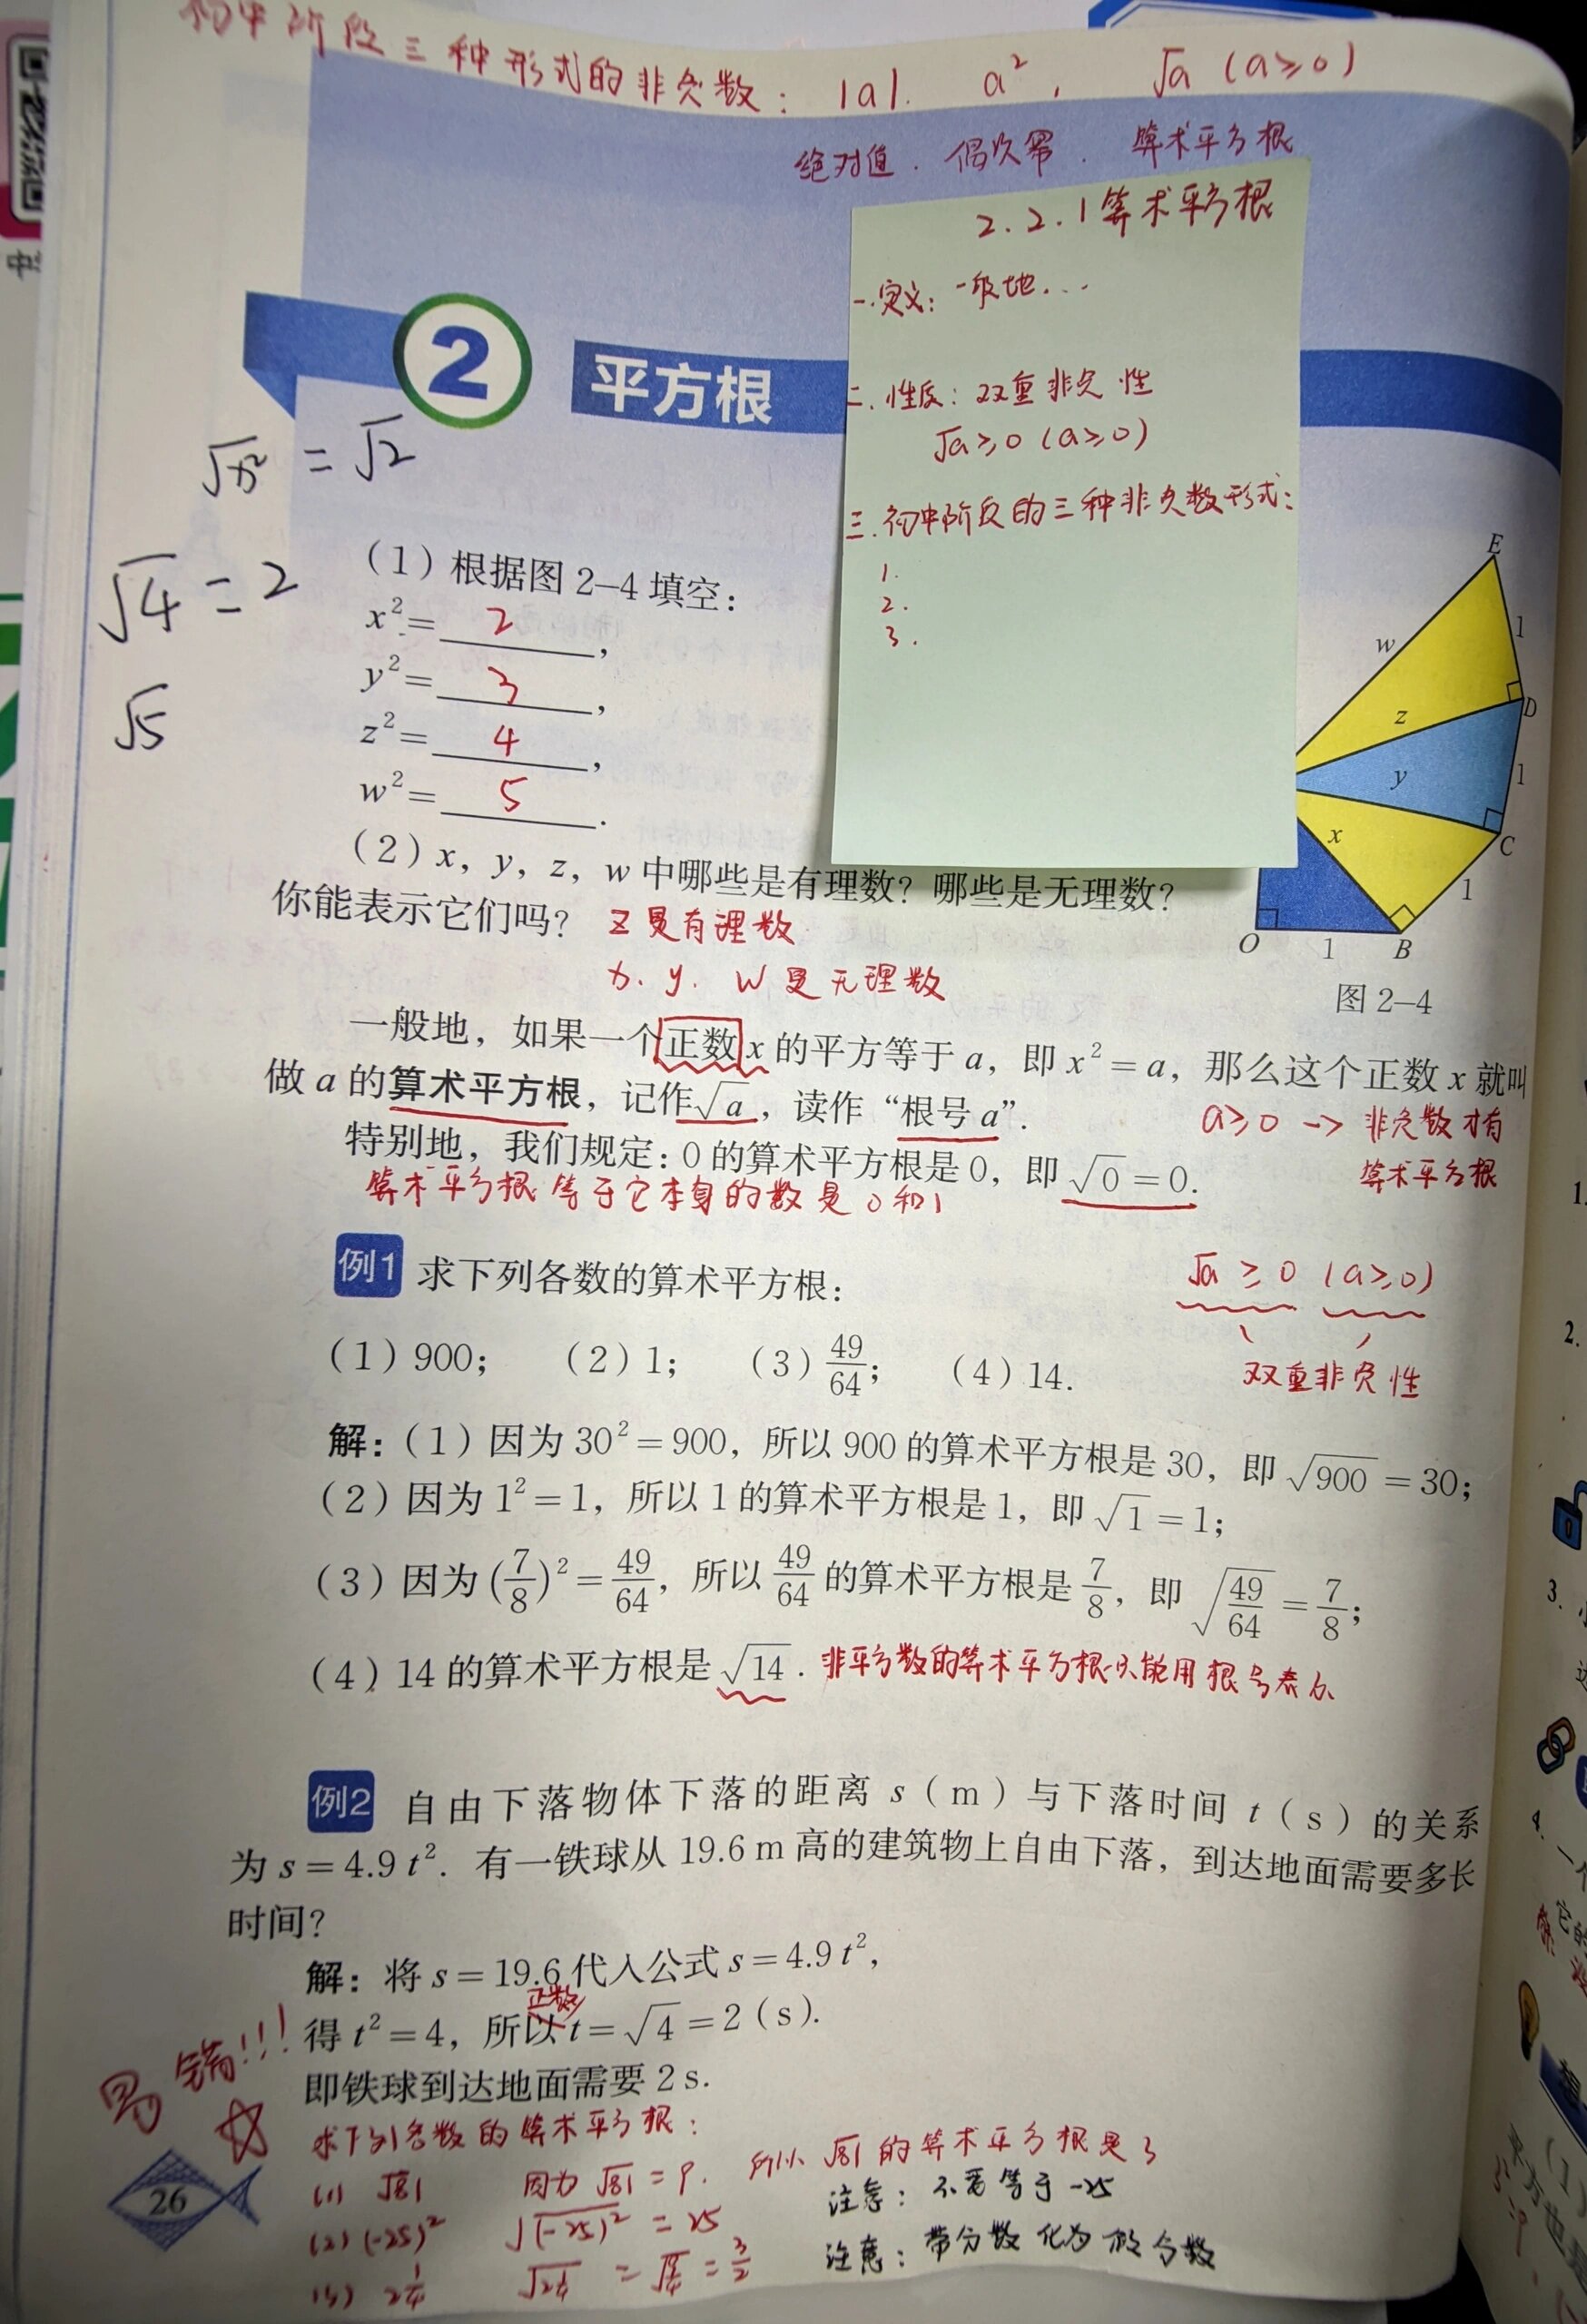 初中阶段三种形式的非负数: |a|. a², √a (a≥0)
绝对值. 偶次幂. 算术平方根
2.2.1算术平方根
一.定义: 一般地...
二.性质: 双重非负性
√a≥0 (a≥0)
三.初中阶段的三种非负数形式:
1.
2.
3.
2 平方根
√x² = √2
√4 = 2
√5
(1) 根据图 2-4 填空:
x² = 2,
y² = 3,
z² = 4,
w² = 5.
(2) x, y, z, w 中哪些是有理数? 哪些是无理数?
你能表示它们吗? z是有理数
x. y. w是无理数
E
w
1
z
D
y
1
x
C
1
O
1
B
图 2-4
一般地, 如果一个正数 x 的平方等于 a, 即 x² = a, 那么这个正数 x 就叫
做 a 的算术平方根, 记作√a, 读作 “根号 a”.
a≥0 → 非负数才有
算术平方根
特别地, 我们规定: 0 的算术平方根是 0, 即 √0 = 0.
算术平方根等于它本身的数是0和1
例1 求下列各数的算术平方根:
√a ≥ 0 (a≥0)
双重非负性
(1) 900; (2) 1; (3) 49/64; (4) 14.
解: (1) 因为 30² = 900, 所以 900 的算术平方根是 30, 即 √900 = 30;
(2) 因为 1² = 1, 所以 1 的算术平方根是 1, 即 √1 = 1;
(3) 因为 (7/8)² = 49/64, 所以 49/64 的算术平方根是 7/8, 即 √(49/64) = 7/8;
(4) 14 的算术平方根是 √14. 非平方数的算术平方根只能用根号表示
例2 自由下落物体下落的距离 s (m) 与下落时间 t (s) 的关系
为 s = 4.9 t². 有一铁球从 19.6 m 高的建筑物上自由下落, 到达地面需要多长
时间?
解: 将 s = 19.6 代入公式 s = 4.9 t²,
正数
得 t² = 4, 所以 t = √4 = 2 (s).
即铁球到达地面需要 2 s.
易错!!!
求下列各数的算术平方根:
(1) √81 因为 √81 = 9. 所以 √81 的算术平方根是 3
(2) (-25)² √(-25)² = 25 注意: 不要等于 -25
(3) 2 1/4 √2 1/4 = √9/4 = 3/2 注意: 带分数化为假分数
26